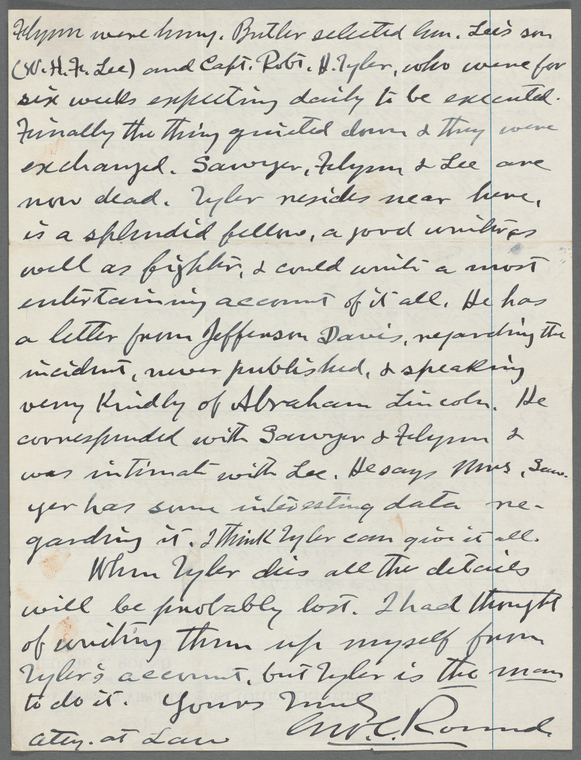 Flynn were hung. Butler selected Gen. Lee's son
(W. H. F. Lee) and Capt. Robt. H. Tyler, who were for
six weeks expecting daily to be executed.
Finally the thing quieted down & they were
exchanged. Sawyer, Flynn & Lee are
now dead. Tyler resides near here,
is a splendid fellow, a good writer as
well as fighter, & could write a most
entertaining account of it all. He has
a letter from Jefferson Davis, regarding the
incident, never published, & speaking
very kindly of Abraham Lincoln. He
corresponded with Sawyer & Flynn &
was intimate with Lee. He says Mrs. Saw-
yer has some interesting data re-
garding it. I think Tyler can give it all.
When Tyler dies all the details
will be probably lost. I had thought
of writing them up myself from
Tyler's account, but Tyler is the man
to do it. Yours Truly
Geo. C. Round
atty. at Law